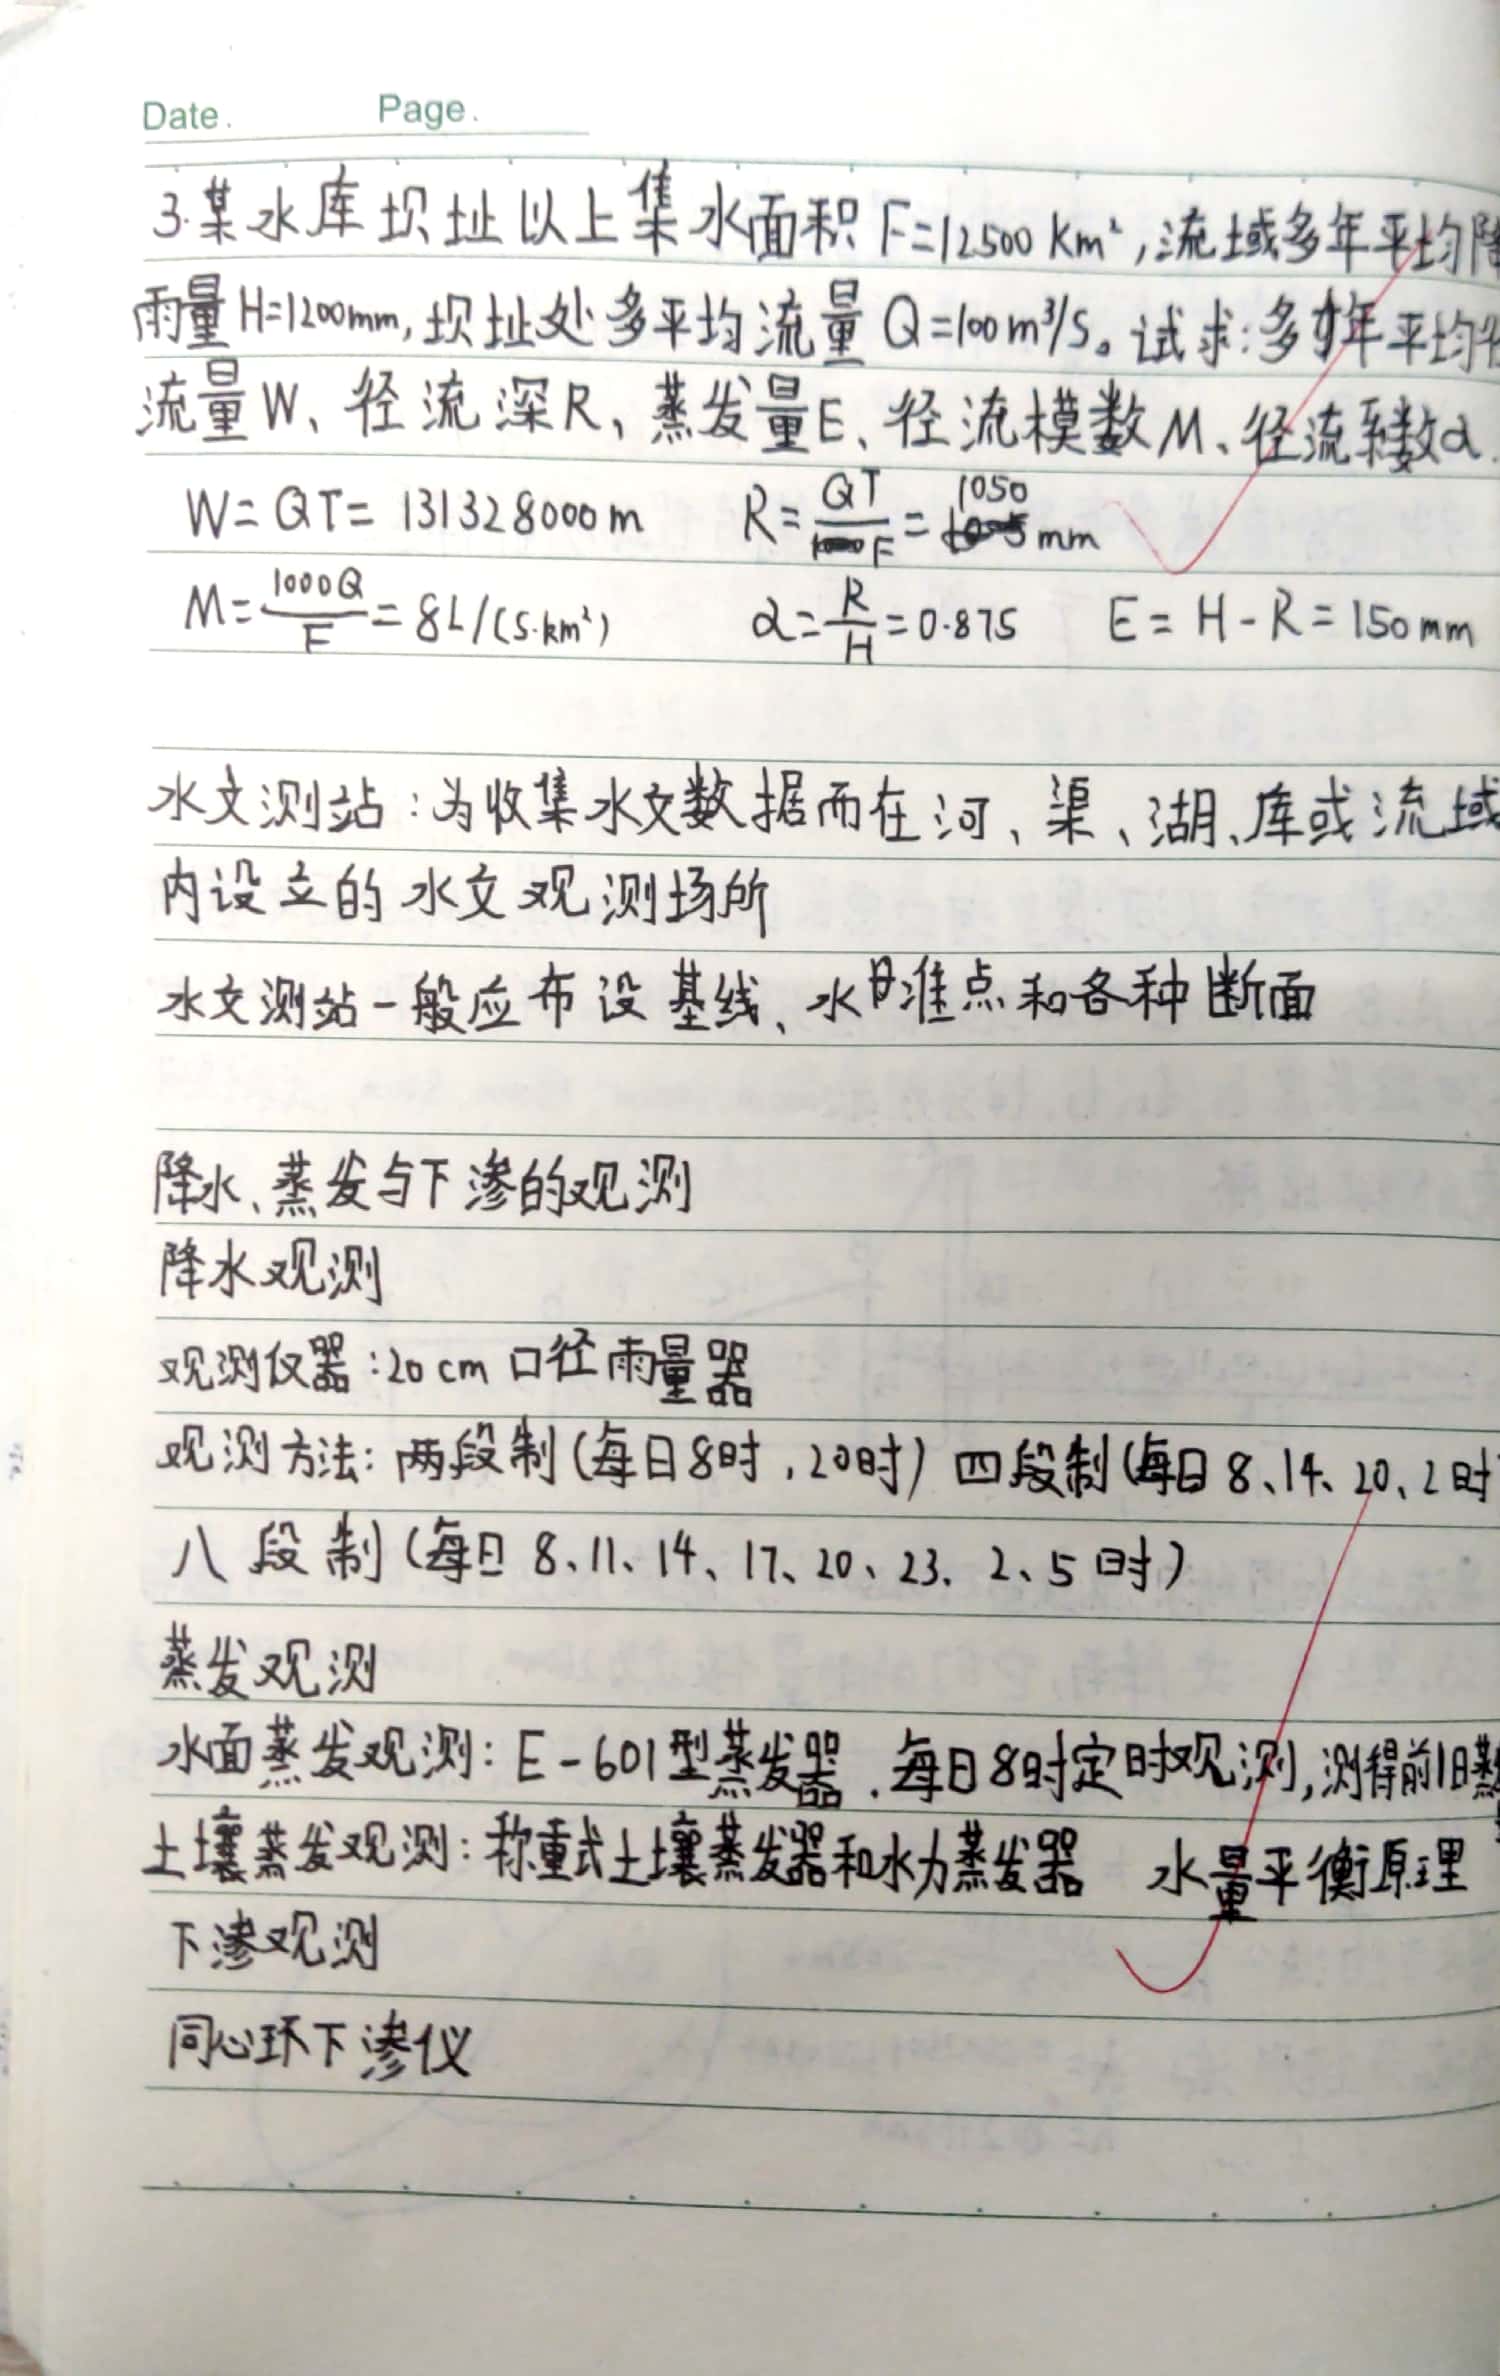 Date.    Page.
3.某水库坝址以上集水面积F=12500Km²,流域多年平均降
雨量H=1200mm,坝址处多平均流量Q=100m³/s。试求:多年平均径
流量W、径流深R、蒸发量E、径流模数M、径流系数α.
W=QT=131328000m    R=QT/F=1050mm
M=1000Q/F=8L/(s·km²)    α=R/H=0.875    E=H-R=150mm
水文测站:为收集水文数据而在河、渠、湖、库或流域
内设立的水文观测场所
水文测站一般应布设基线、水准点和各种断面
降水、蒸发与下渗的观测
降水观测
观测仪器:20cm口径雨量器
观测方法:两段制(每日8时,20时)四段制(每日8、14、20、2时
八段制(每日8、11、14、17、20、23、2、5时)
蒸发观测
水面蒸发观测:E-601型蒸发器.每日8时定时观测,测得前1日蒸
土壤蒸发观测:称重式土壤蒸发器和水力蒸发器 水量平衡原理
下渗观测
同心环下渗仪